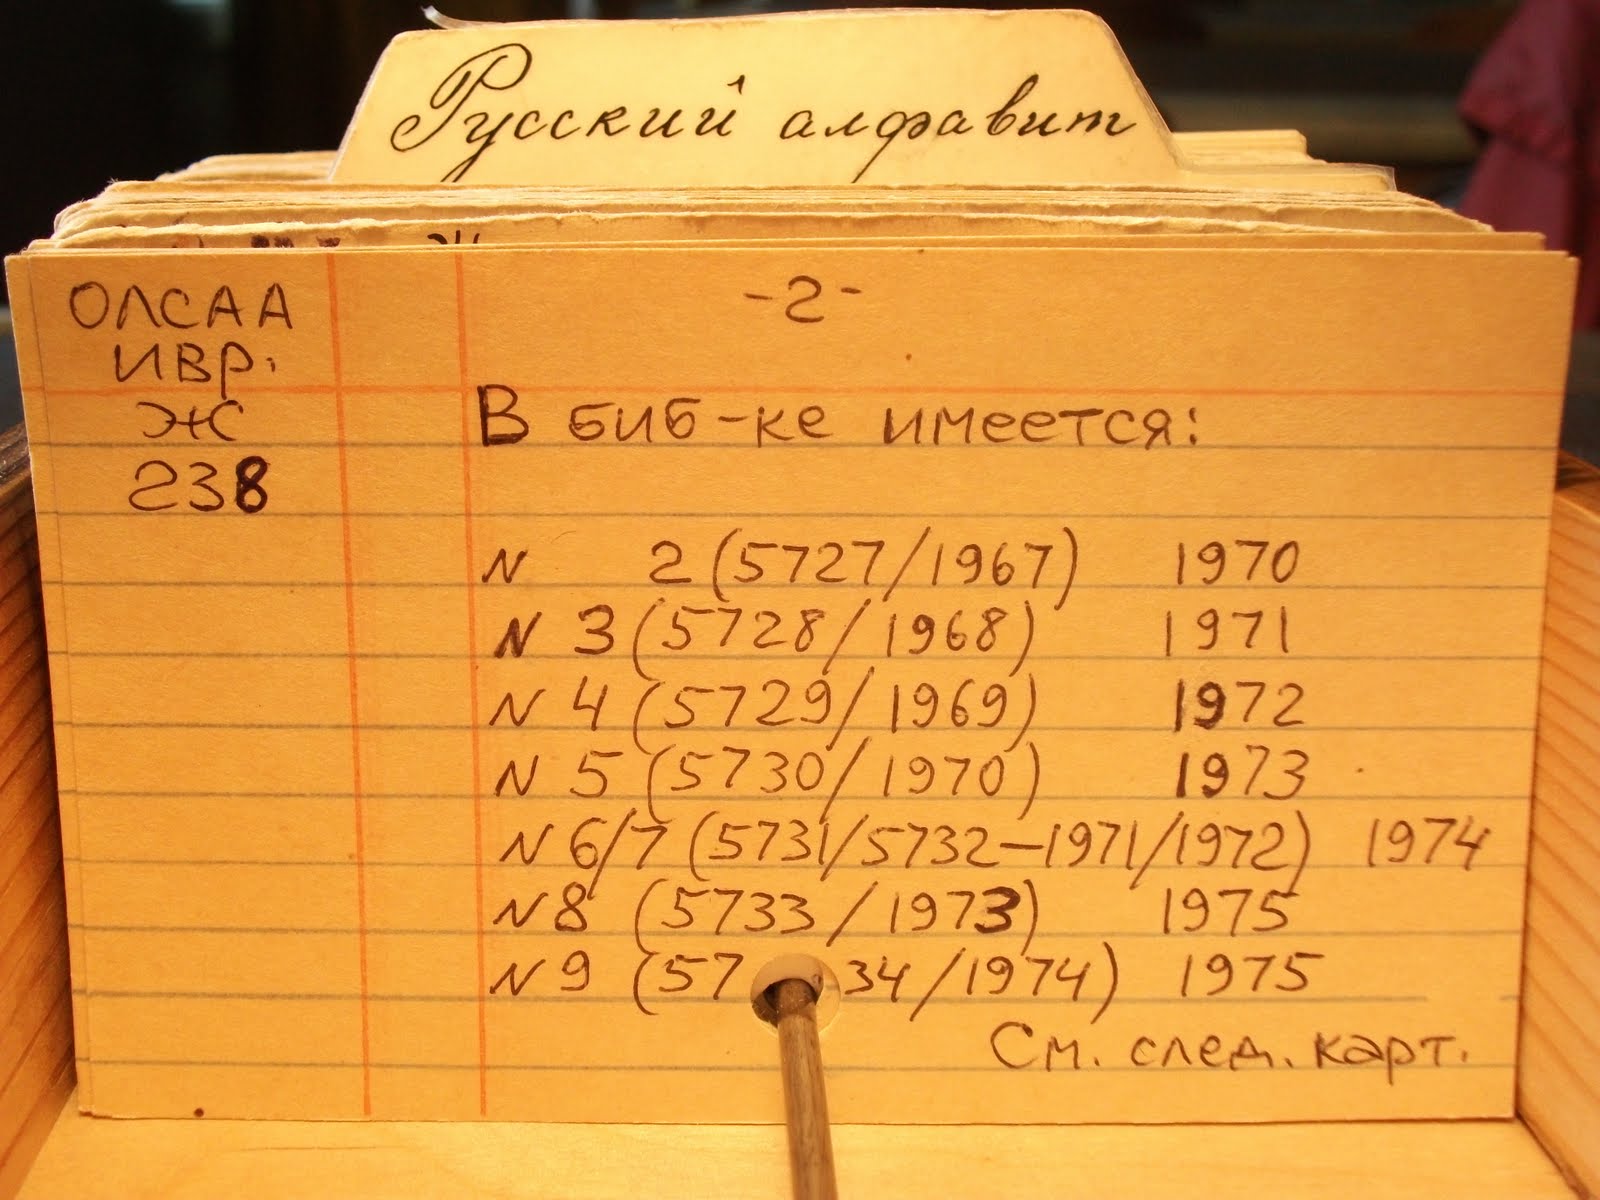 Русский алфавит
ОЛСАА
ИВР.
Ж
238
-2-
В биб-ке имеется:
N 2 (5727/1967) 1970
N 3 (5728/1968) 1971
N 4 (5729/1969) 1972
N 5 (5730/1970) 1973
N 6/7 (5731/5732-1971/1972) 1974
N 8 (5733/1973) 1975
N 9 (5734/1974) 1975
См. след. карт.